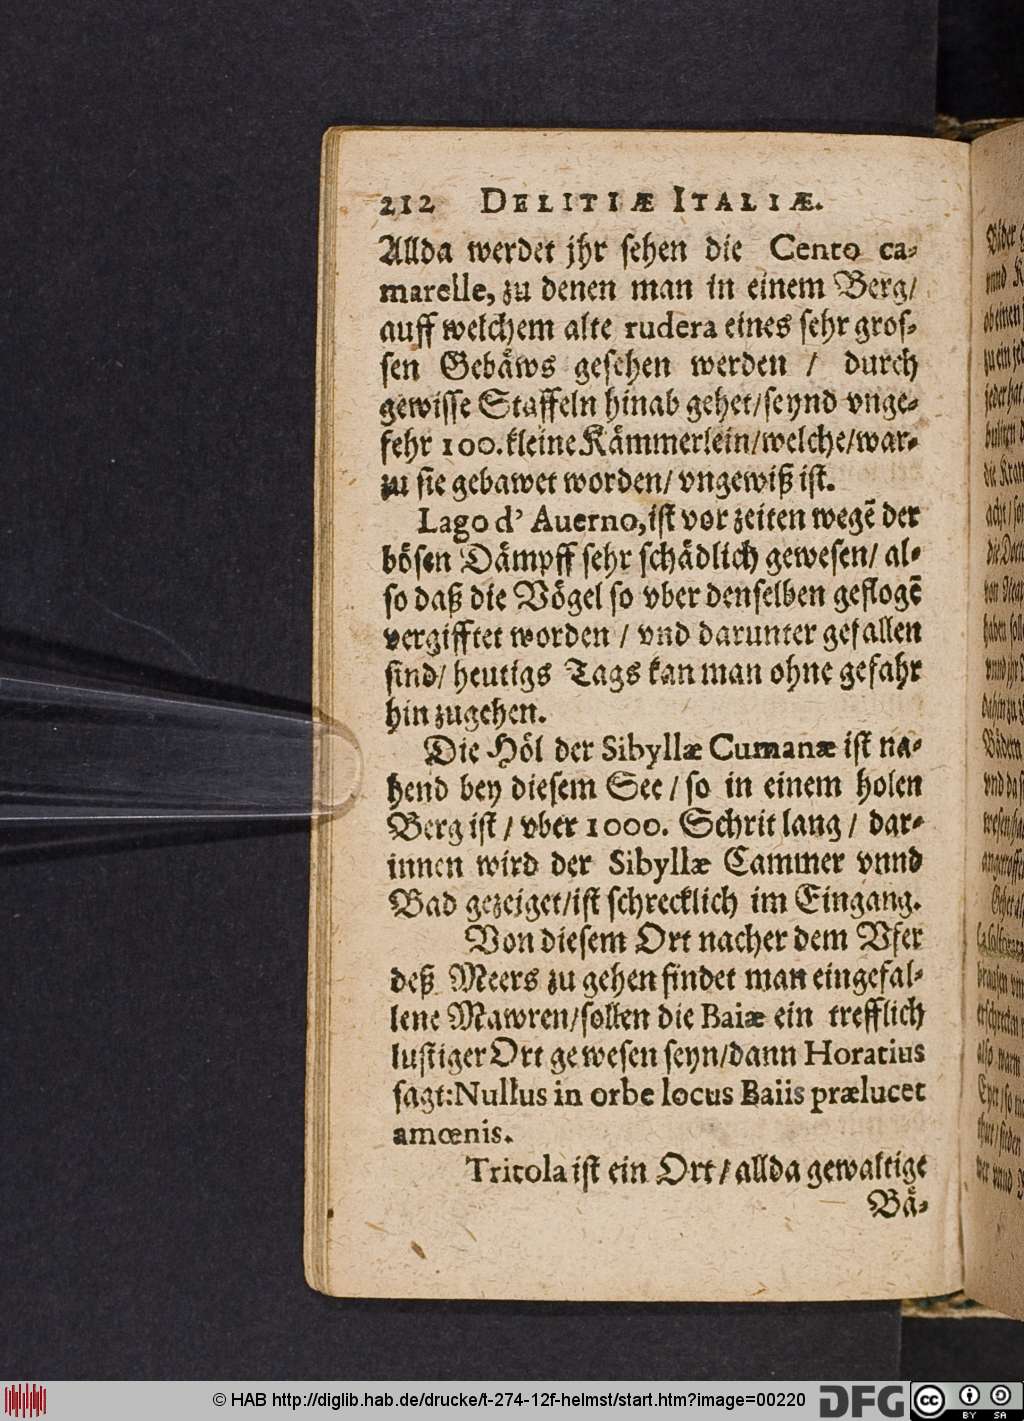 212 DELITIÆ ITALIÆ.
Allda werdet jhr sehen die Cento ca-
marelle, zu denen man in einem Berg/
auff welchem alte rudera eines sehr gros-
sen Gebäws gesehen werden / durch
gewisse Staffeln hinab gehet/seynd vnge-
fehr 100. kleine Kämmerlein/welche/war-
zu sie gebawet worden/ vngewiß ist.
Lago d' Auerno, ist vor zeiten wegẽ der
bösen Dämpff sehr schädlich gewesen/ al-
so daß die Vögel so vber denselben geflogẽ
vergifftet worden / vnd darunter gefallen
sind/ heutigs Tags kan man ohne gefahr
hin zugehen.
Die Höl der Sibyllæ Cumanæ ist na-
hend bey diesem See / so in einem holen
Berg ist / vber 1000. Schrit lang / dar-
innen wird der Sibyllæ Cammer vnnd
Bad gezeiget/ist schrecklich im Eingang.
Von diesem Ort nacher dem Vfer
deß Meers zu gehen findet man eingefal-
lene Mawren/sollen die Baiæ ein trefflich
lustiger Ort gewesen seyn/dann Horatius
sagt: Nullus in orbe locus Baiis prælucet
amœnis.
Tritola ist ein Ort / allda gewaltige
Bä-
© HAB http://diglib.hab.de/drucke/t-274-12f-helmst/start.htm?image=00220
DFG
cc BY SA